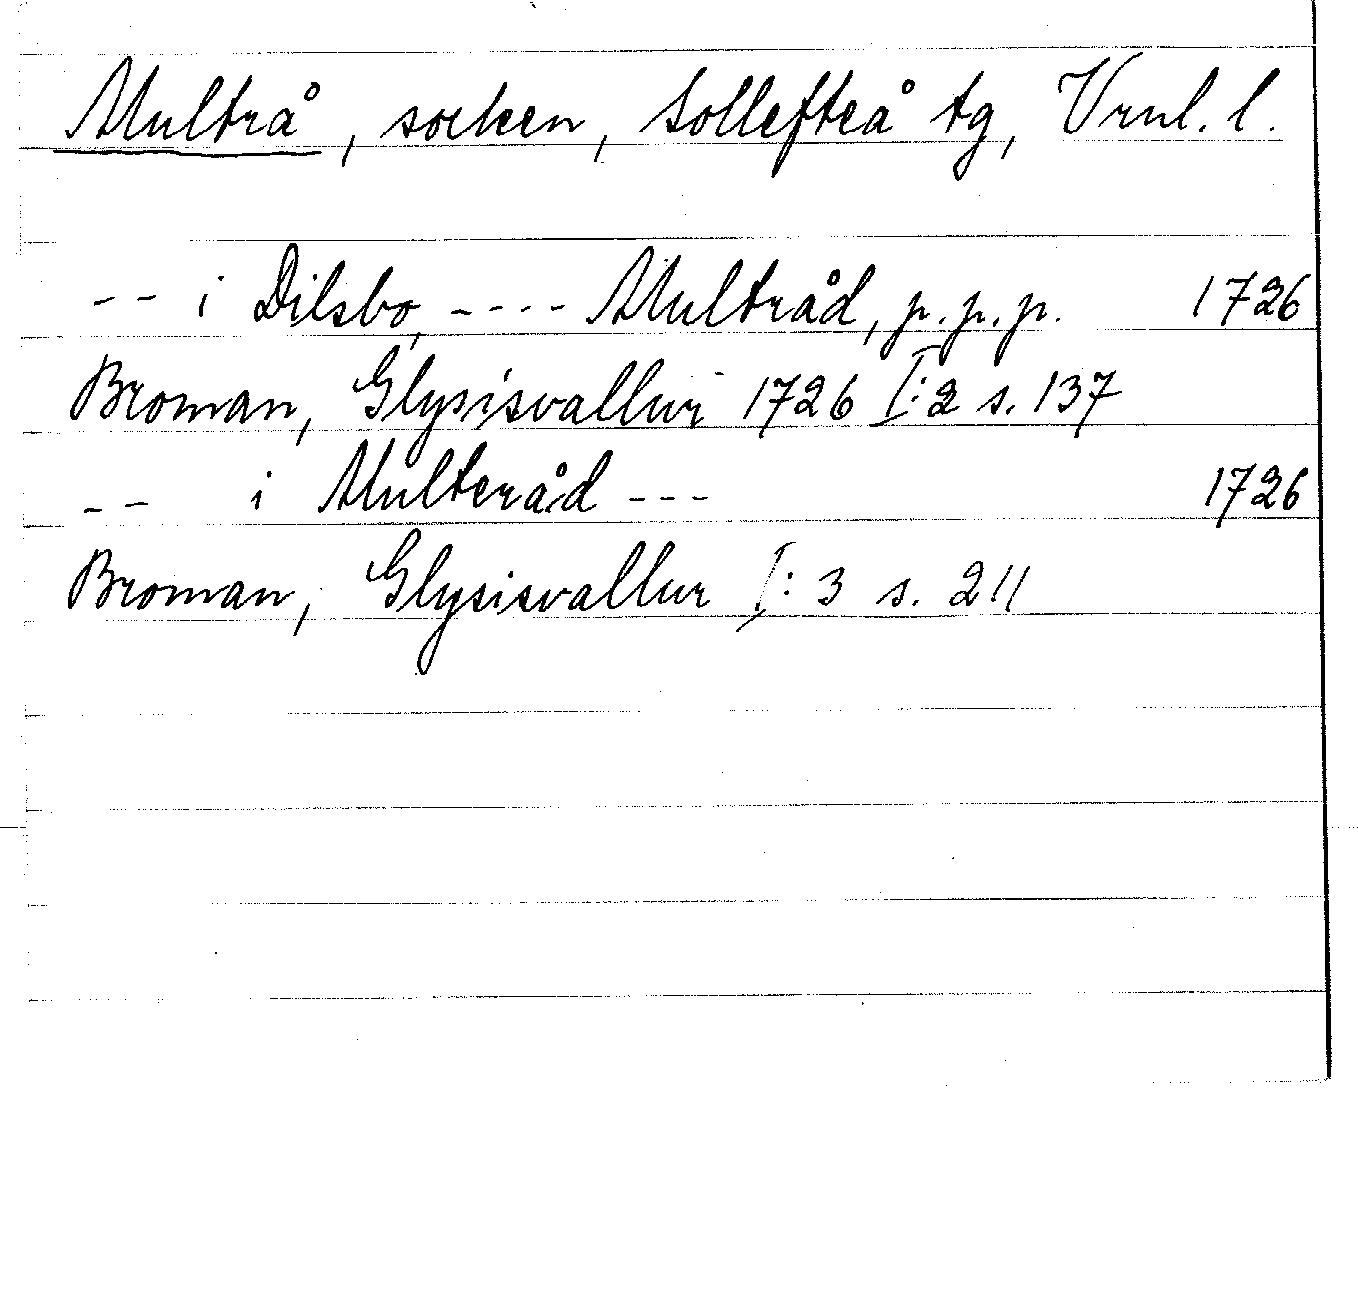 Multrå, socken, Sollefteå tg, Vrnl. l.
-- i Dilsbo, ---- Multråd, p. p. p. 1726
Broman, Glysisvallur 1726 I:2 s. 137
-- i Multeråd --- 1726
Broman, Glysisvallur I:3 s. 211